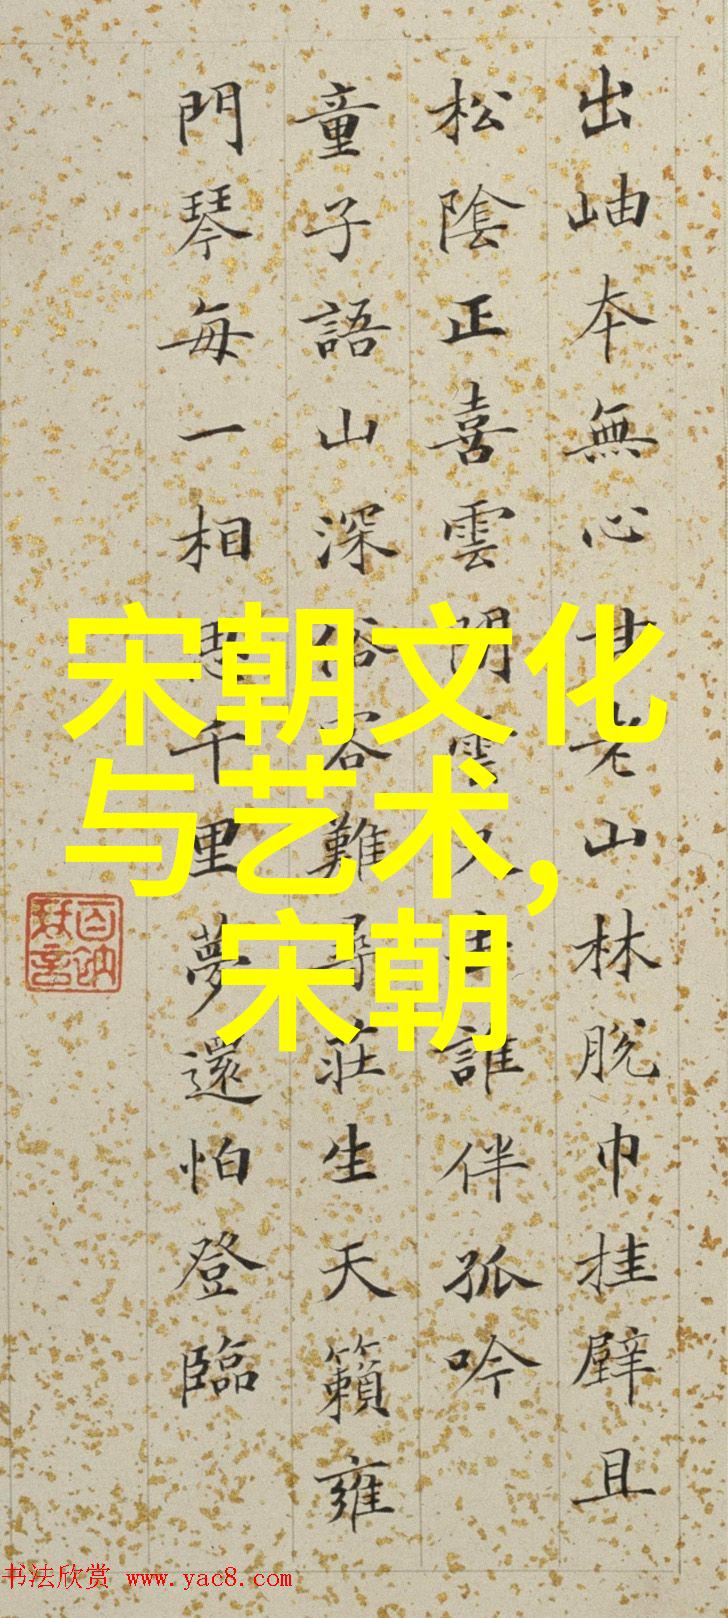 宋朝文化
与艺术,
宋朝
出岫本無心甘老山林脫巾挂壁且
松陰正喜雲雲去誰伴孤吟
童子語山深俗客難尋莊生天籟雍
門琴每一相思千里夢還怕登臨
书法欣赏 www.yac8.com